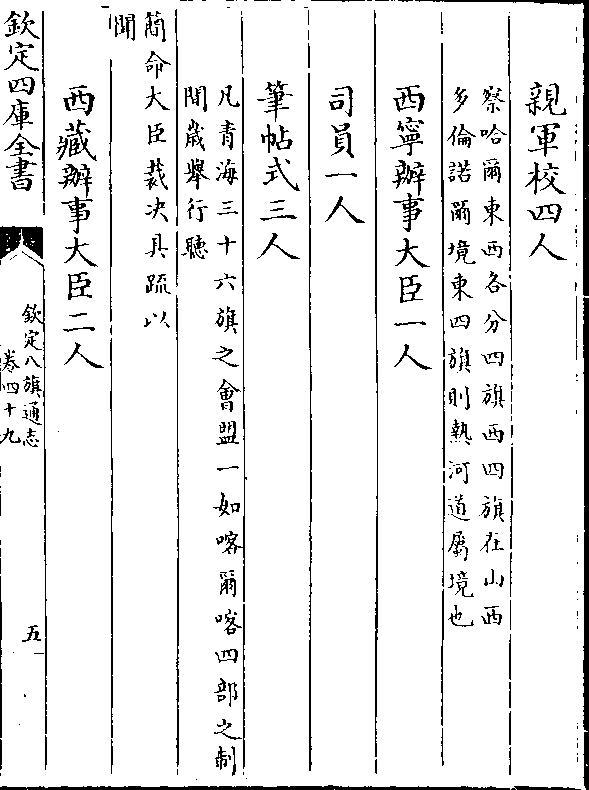 親軍校四人
察哈爾東西各分四旗西四旗在山西
多倫諾爾境東四旗則熱河道屬境也
西寧辦事大臣一人
司員一人
筆帖式三人
凡青海三十六旗之會盟一如喀爾喀四部之制
間歲舉行聽
簡命大臣裁決具疏以
聞
西藏辦事大臣二人
欽定四庫全書
欽定八旗通志
卷四十九
五